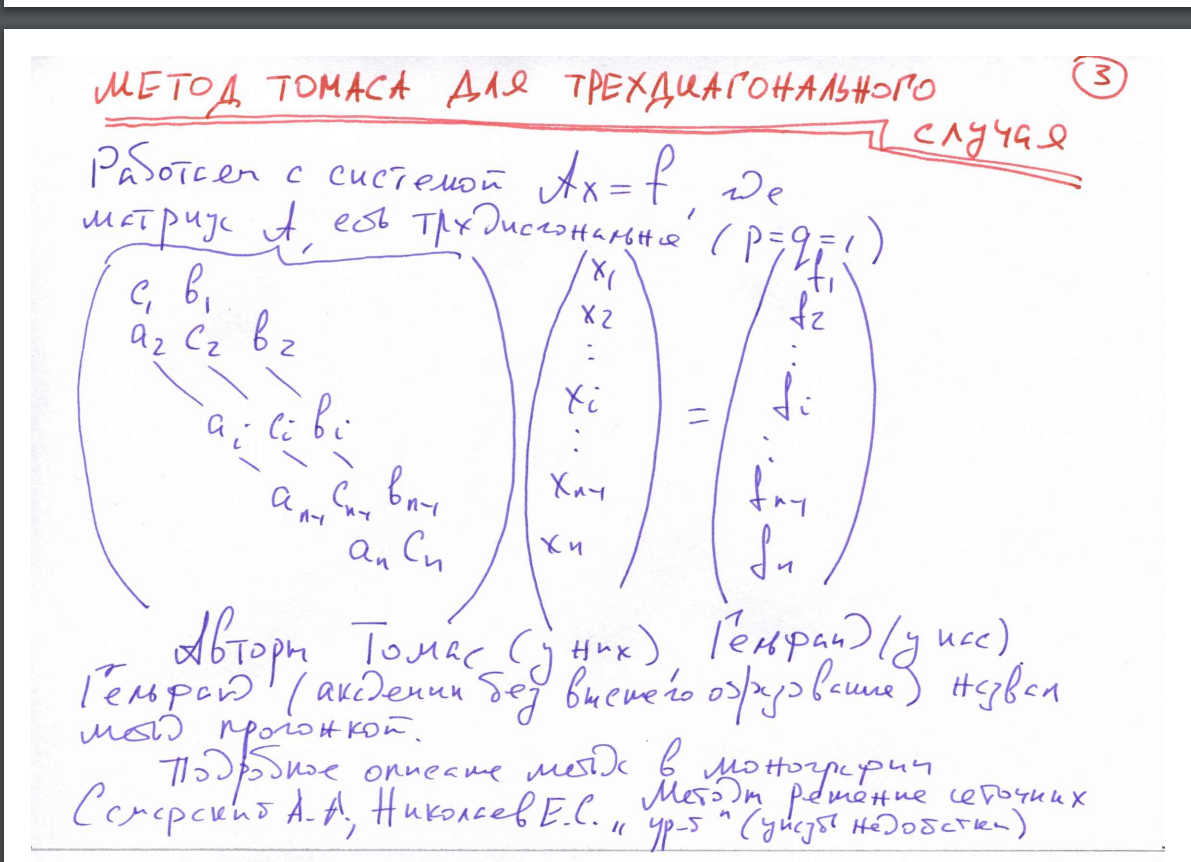 МЕТОД ТОМАСА ДЛЯ ТРЕХДИАГОНАЛЬНОГО
3
СЛУЧАЯ
Работаем с системой Ax = f, где
матрица A, есть трхдиагональная (p=q=1)
c₁ b₁
a₂ c₂ b₂
aᵢ cᵢ bᵢ
aₙ₋₁ cₙ₋₁ bₙ₋₁
aₙ cₙ
x₁
x₂
⋮
xᵢ
⋮
xₙ₋₁
xₙ
=
f₁
f₂
⋮
fᵢ
⋮
fₙ₋₁
fₙ
Авторы Томас (у них), Гельфанд (у нас).
Гельфанд (академик без высшего образования) назвал
метод прогонкой.
Подробное описание метода в монографии
Самарский А.А., Николаев Е.С. „Методы решения сеточных
ур-й" (указать недостатки)